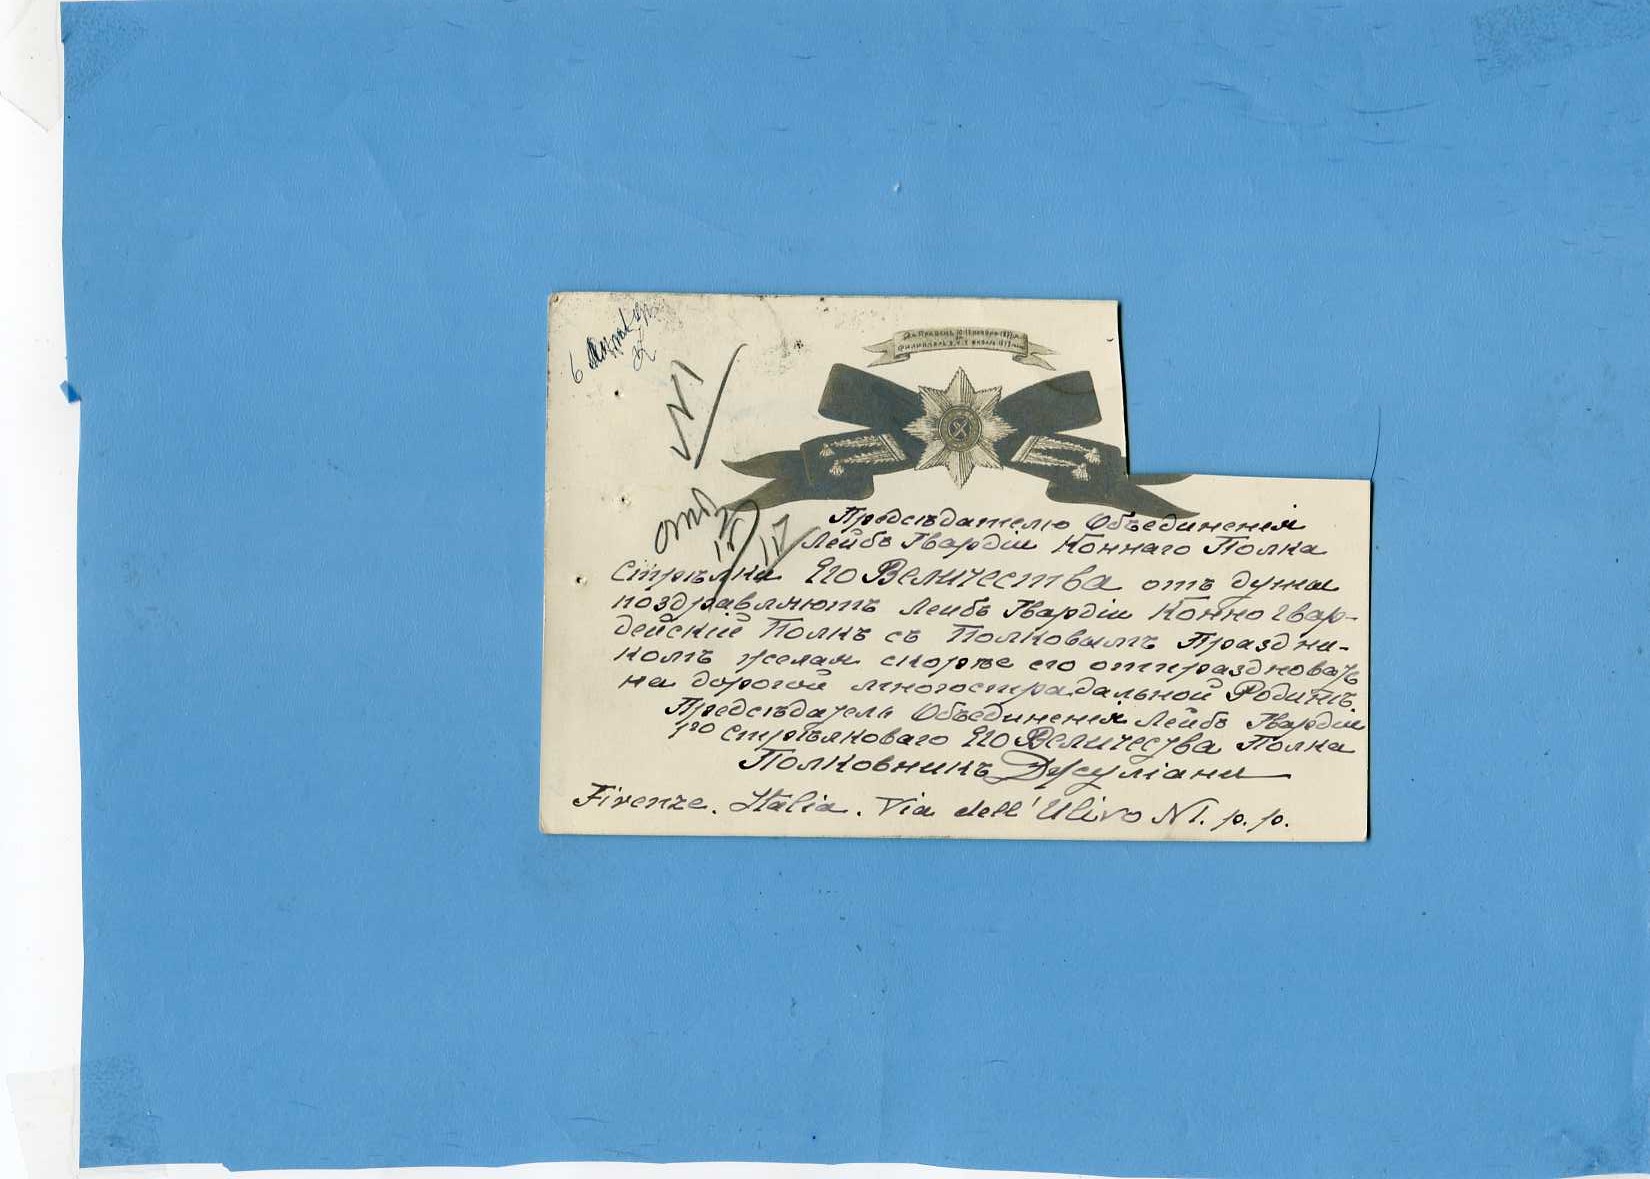 За Правецъ 10-11 ноября 1877 г.
и
Филиппополь 3, 4, 5 января 1878 года
6
№1
Отв.
Предсѣдателю Объединенія
Лейбъ Гвардіи Коннаго Полка
Стрѣлки Его Величества отъ души
поздравляютъ Лейбъ Гвардіи Конно Гвар-
дейскій Полкъ съ Полковымъ Праздни-
комъ желая скорѣе его отпраздновать
на дорогой многострадальной Родинѣ.
Предсѣдатель Объединенія Лейбъ Гвардіи
1го Стрѣлковаго Его Величества Полка
Полковникъ Джуліани
Firenze. Italia. Via dell' Ulivo N1. p. p.